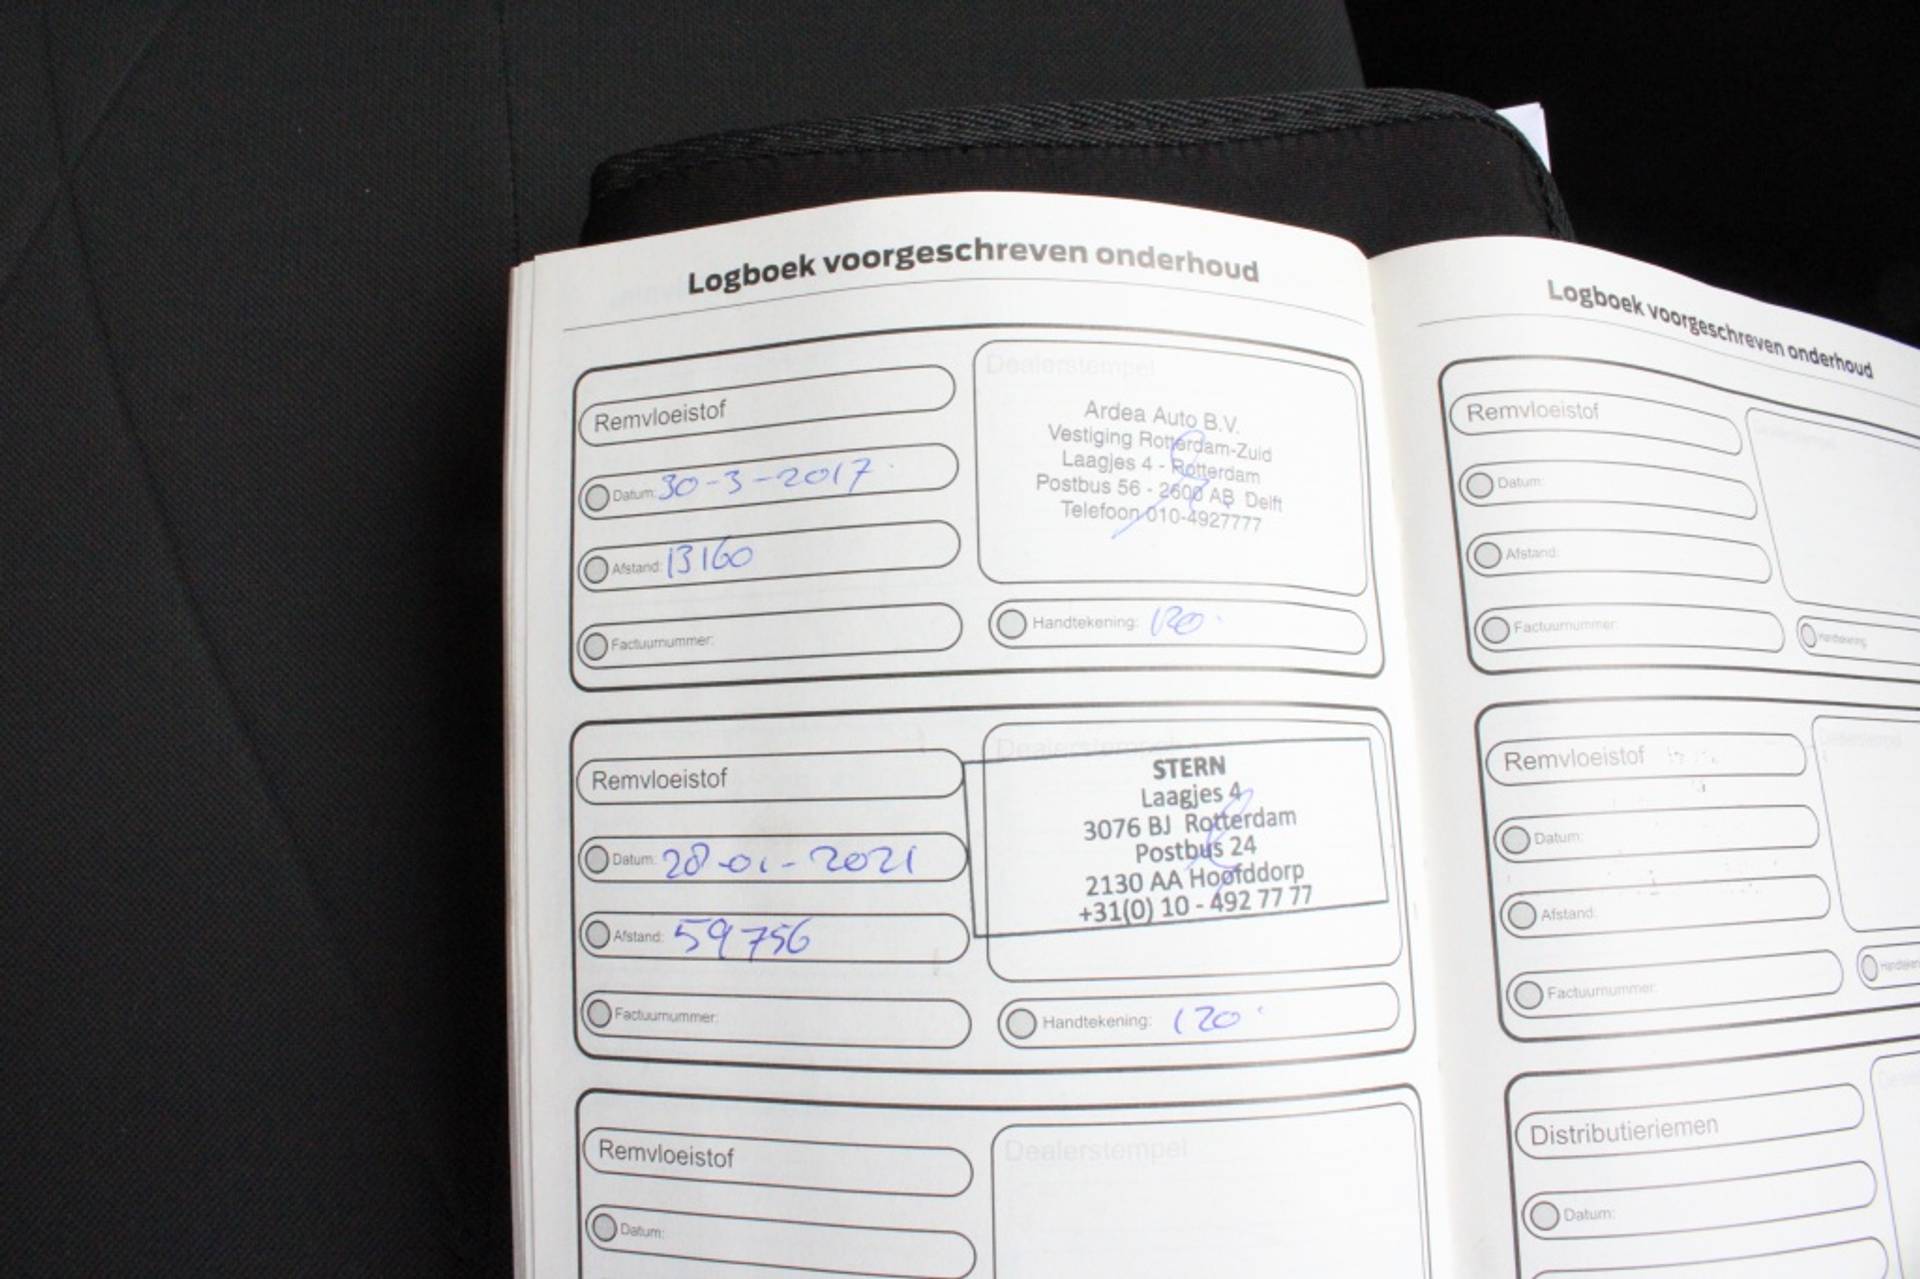 Logboek voorgeschreven onderhoud
Remvloeistof
Datum: 30-3-2017
Afstand: 13160
Factuurnummer:
Dealerstempel
Ardea Auto B.V.
Vestiging Rotterdam-Zuid
Laagjes 4 - Rotterdam
Postbus 56 - 2600 AB Delft
Telefoon 010-4927777
Handtekening:
Remvloeistof
Datum: 28-01-2021
Afstand: 59756
Factuurnummer:
Dealerstempel
STERN
Laagjes 4
3076 BJ Rotterdam
Postbus 24
2130 AA Hoofddorp
+31(0) 10 - 492 77 77
Handtekening: 120
Remvloeistof
Datum:
Dealerstempel
Logboek voorgeschreven onderhoud
Remvloeistof
Datum:
Afstand:
Factuurnummer:
Dealerstempel
Handtekening:
Remvloeistof
Datum:
Afstand:
Factuurnummer:
Dealerstempel
Distributieriemen
Datum: